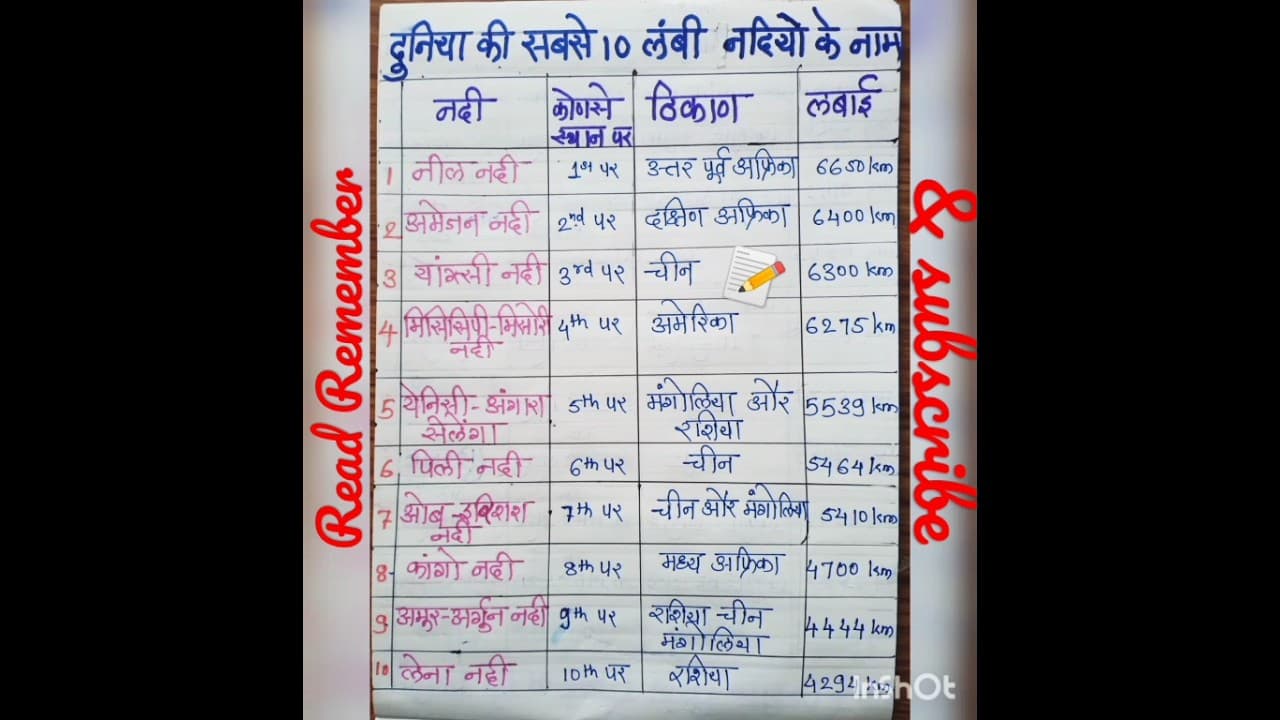 दुनिया की सबसे 10 लंबी नदियो के नाम
नदी कोणसे स्थान पर ठिकाण लबाई
1 नील नदी 1st पर उत्तर पूर्व अफ्रिका 6650 km
2 अमेजन नदी 2nd पर दक्षिण अफ्रिका 6400 km
3 यांगत्सी नदी 3rd पर चीन 6300 km
4 मिसिसिपी-मिसोरी नदी 4th पर अमेरिका 6275 km
5 येनिसी-अंगारा सेलेंगा 5th पर मंगोलिया और रशिया 5539 km
6 पिली नदी 6th पर चीन 5464 km
7 ओब-इरिशश नदी 7th पर चीन और मंगोलिया 5410 km
8- कांगो नदी 8th पर मध्य अफ्रिका 4700 km
9 अमूर-अर्गुन नदी 9th पर रशिया चीन मंगोलिया 4444 km
10 लेना नदी 10th पर रशिया 4294 km
Read Remember
& subscribe
InShOt